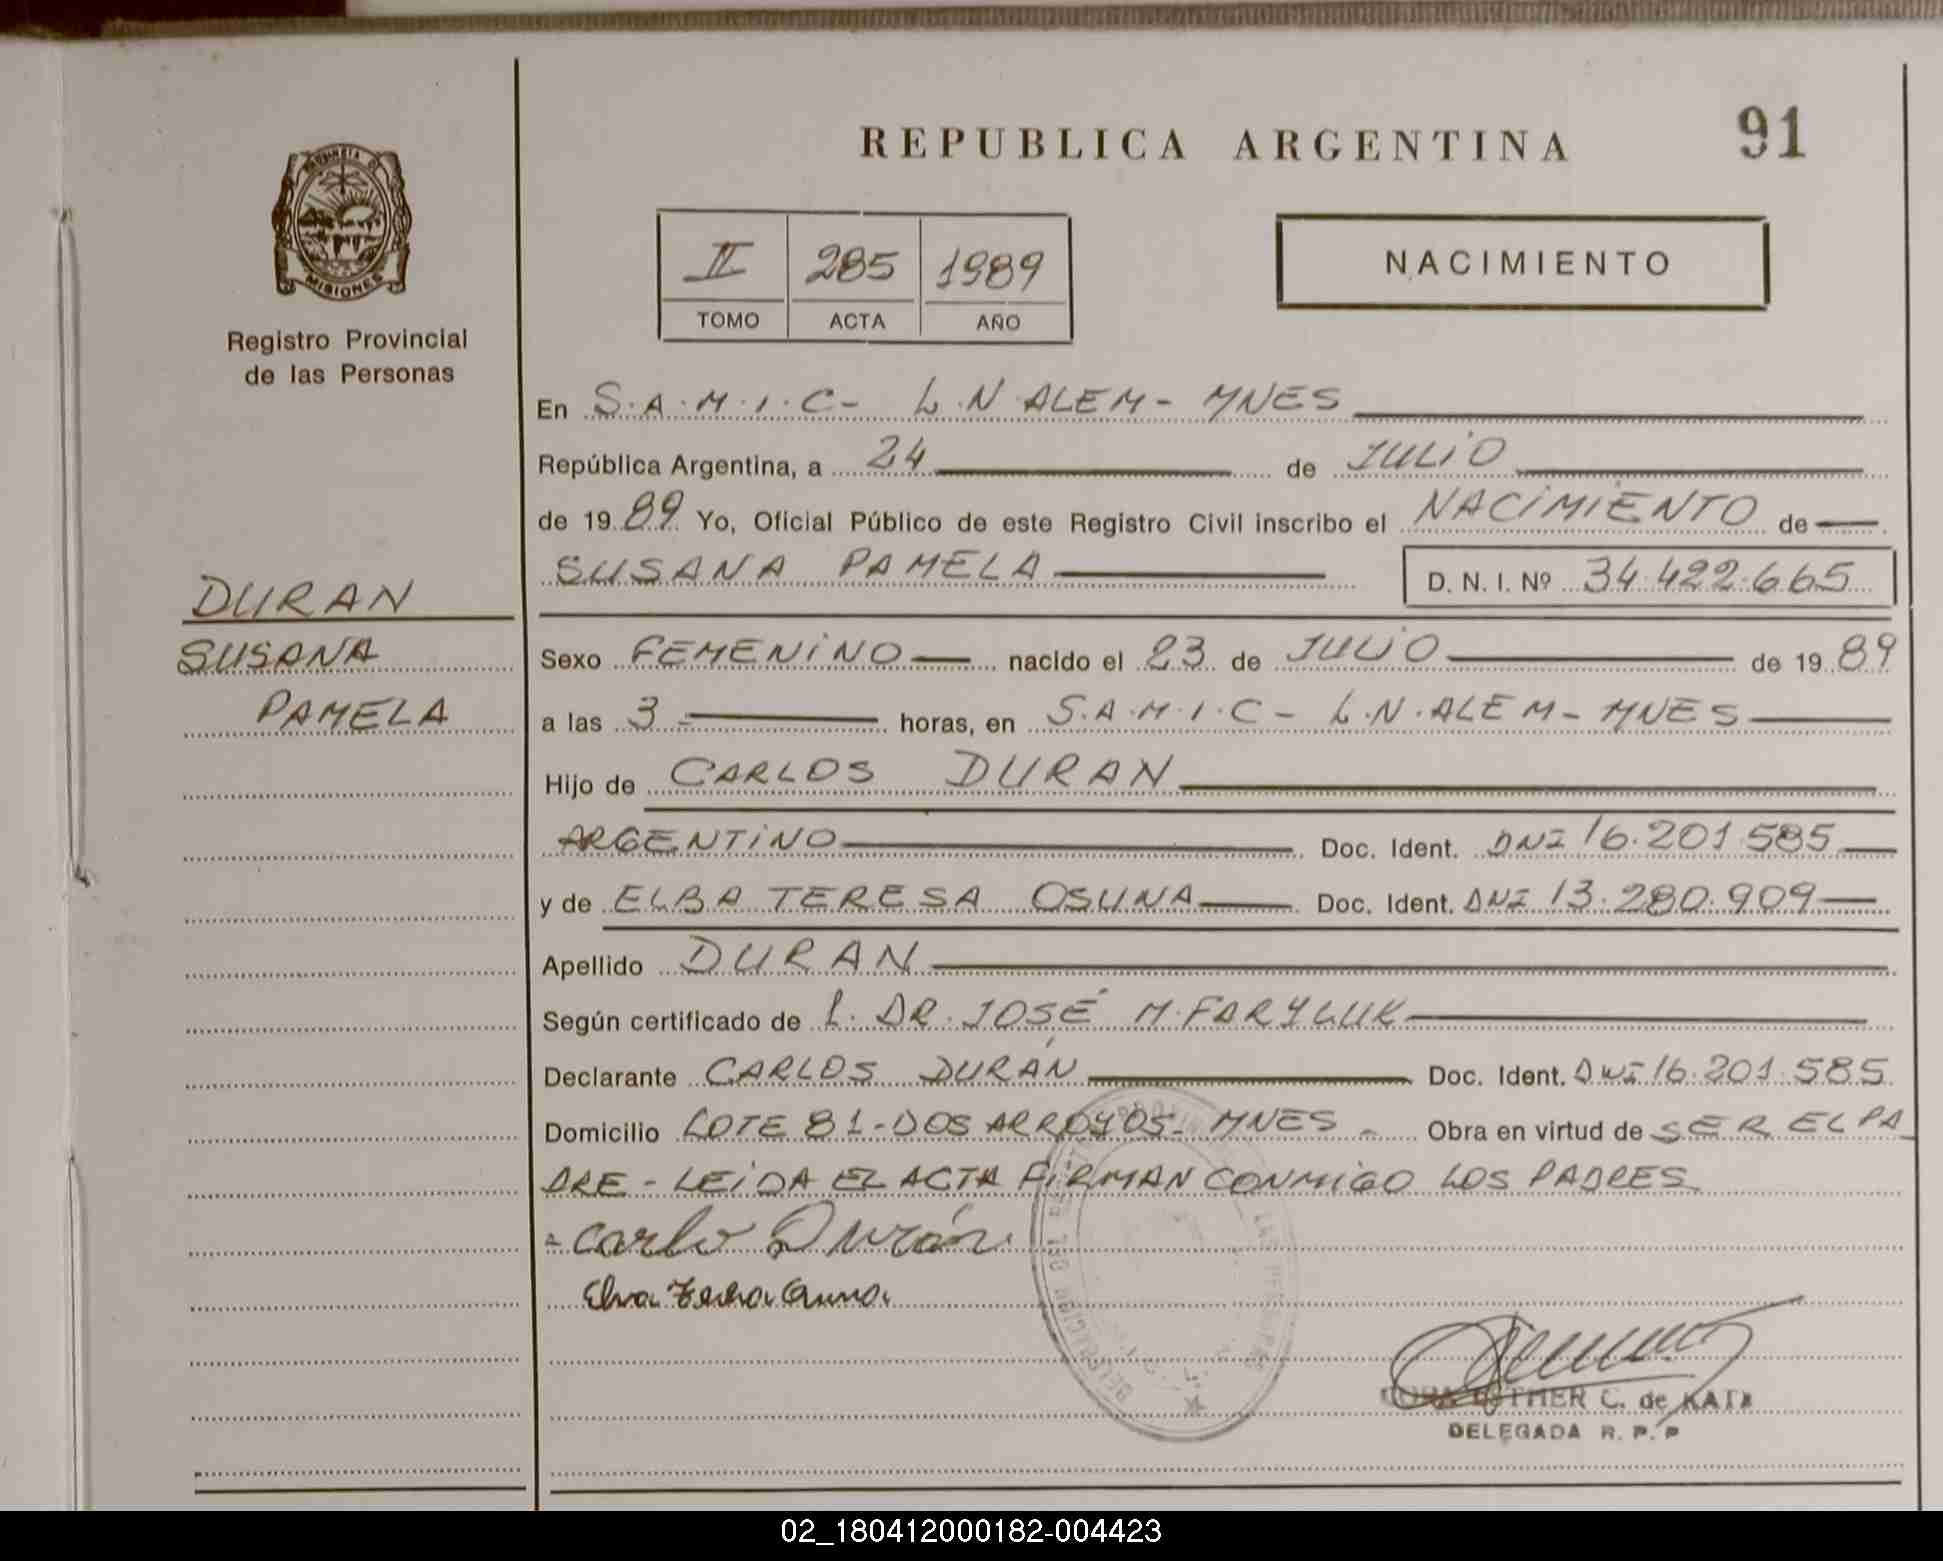 REPUBLICA ARGENTINA
91
PROVINCIA DE
MISIONES
Registro Provincial
de las Personas
II 285 1989
TOMO ACTA AÑO
NACIMIENTO
En S.A.M.I.C- L.N.ALEM- MNES
República Argentina, a 24 de JULIO
de 1989 Yo, Oficial Público de este Registro Civil inscribo el NACIMIENTO de
SUSANA PAMELA D. N. I. Nº 34.422.665
DURAN
SUSANA
PAMELA
Sexo FEMENINO nacido el 23 de JULIO de 1989
a las 3 horas, en S.A.M.I.C- L.N.ALEM- MNES
Hijo de CARLOS DURAN
ARGENTINO Doc. Ident. DNI 16.201.585
y de ELBA TERESA OSUNA Doc. Ident. DNI 13.280.909
Apellido DURAN
Según certificado de DR. JOSÉ M. FARYLUK
Declarante CARLOS DURÁN Doc. Ident. DNI 16.201.585
Domicilio LOTE 81-DOS ARROYOS- MNES - Obra en virtud de SER EL PA
DRE - LEIDA EL ACTA FIRMAN CONMIGO LOS PADRES
Carlos Durán
ESTHER C. de KATZ
DELEGADA R. P. P
02_180412000182-004423